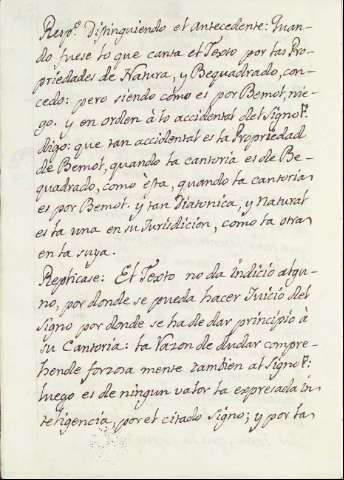 Respo. Distinguiendo el antecedente: Quan-
do fuese lo que canta el Texto por las Pro-
priedades de Natura, y Bequadrado, con-
cedo: pero siendo como es por Bemol, nie-
go. y en orden à lo accidental del Signo F.
digo: que tan accidental es la Propriedad
de Bemol, quando la cantoria es de Be-
quadrado, como èsta, quando la cantoria
es por Bemol. y tan Diatonica, y Natural
es la una en su Jurisdicion, como la otra
en la suya.
Replicase: El Texto no da indicio algu-
no, por donde se pueda hacer Juicio del
Signo por donde se ha de dar principio à
su Cantoria: la Razon de dudar compre-
hende forzosa mente tambien al Signo F:
luego es de ningun valor la expresada in-
teligencia, por el citado Signo; y por la